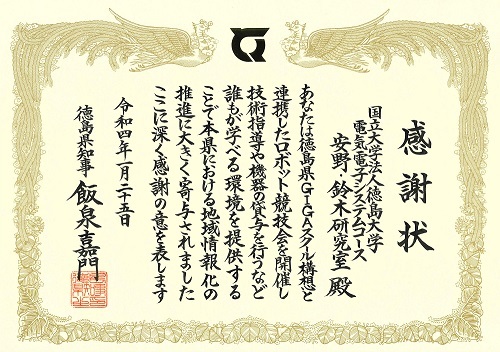 感謝状
国立大学法人徳島大学
電気電子システムコース
安野・鈴木研究室 殿
あなたは徳島県GIGAスクール構想と
連携したロボット競技会を開催し
技術指導や機器の貸与を行うなど
誰もが学べる環境を提供する
ことで本県における地域情報化の
推進に大きく寄与されました
ここに深く感謝の意を表します
令和四年一月二十五日
徳島県知事 飯泉嘉門